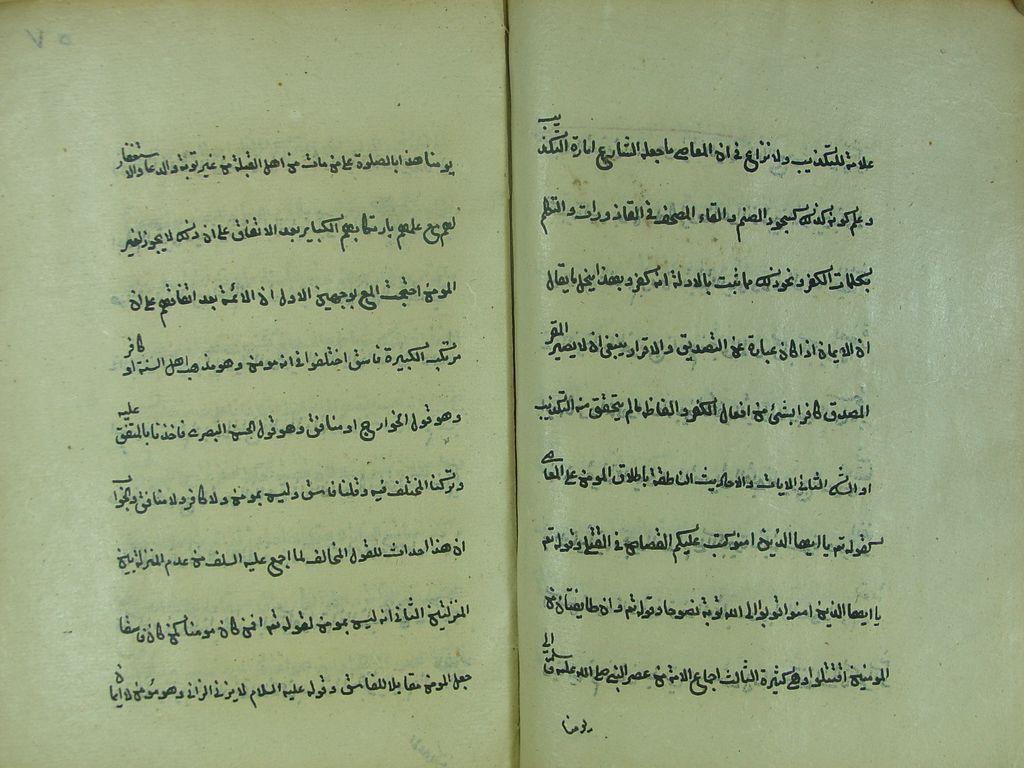 علامة للتكذيب ولا نزاع في ان المعاصي ما جعله الشارع امارة التكذيب
وعلم كونه كذلك كسجود الصنم والقاء المصحف في القاذورات والتلفظ
بكلمات الكفر ونحو ذلك مما ثبت بالادلة انه كفر وبهذا ينحل ما يقال
ان الايمان اذا كان عبارة عن التصديق والاقرار ينبغي ان لا يصير المقر
المصدق كافرا بشئ من افعال الكفر والفاظه مالم يتحقق منه التكذيب
او الشك الثاني الايات والاحاديث الناطقة باطلاق المومن على العاصي
كقوله تع يا ايها الذين امنو كتب عليكم القصاص في القتلى وقوله تع
يا ايها الذين امنوا توبوا الى الله توبة نصوحا وقوله تع وان طايفتان من
المومنين اقتتلوا وهي كثيرة الثالث اجماع الامة من عصر النبي صلى الله عليه وسلم الى
يومنا
٥٧
يومنا هذا بالصلوة على من مات من اهل القبلة من غير توبة والدعا والاستغفار
لهم مع علمهم بارتكابهم الكباير بعد الاتفاق على ان ذلك لا يجوز لغير
المومن احتجت المع بوجهين الاول ان الائمة بعد اتفاقهم على ان
مرتكب الكبيرة فاسق اختلفوا في انه مومن وهو مذهب اهل السنة او كافر
وهو قول الخوارج او منافق وهو قول الحسن البصري فاخذنا بالمتفق عليه
وتركنا المختلف فيه وقلنا فاسق وليس بمومن ولا كافر ولا منافق والجواب
ان هذا احداث للقول المخالف لما اجمع عليه السلف من عدم المنزلة بين
المنزلتين الثاني انه ليس بمومن لقوله تع افمن كان مومنا كمن كان فاسقا
جعل المومن مقابلا للفاسق وقوله عليه السلام لا يزني الزاني وهو مؤمن لا ايمان